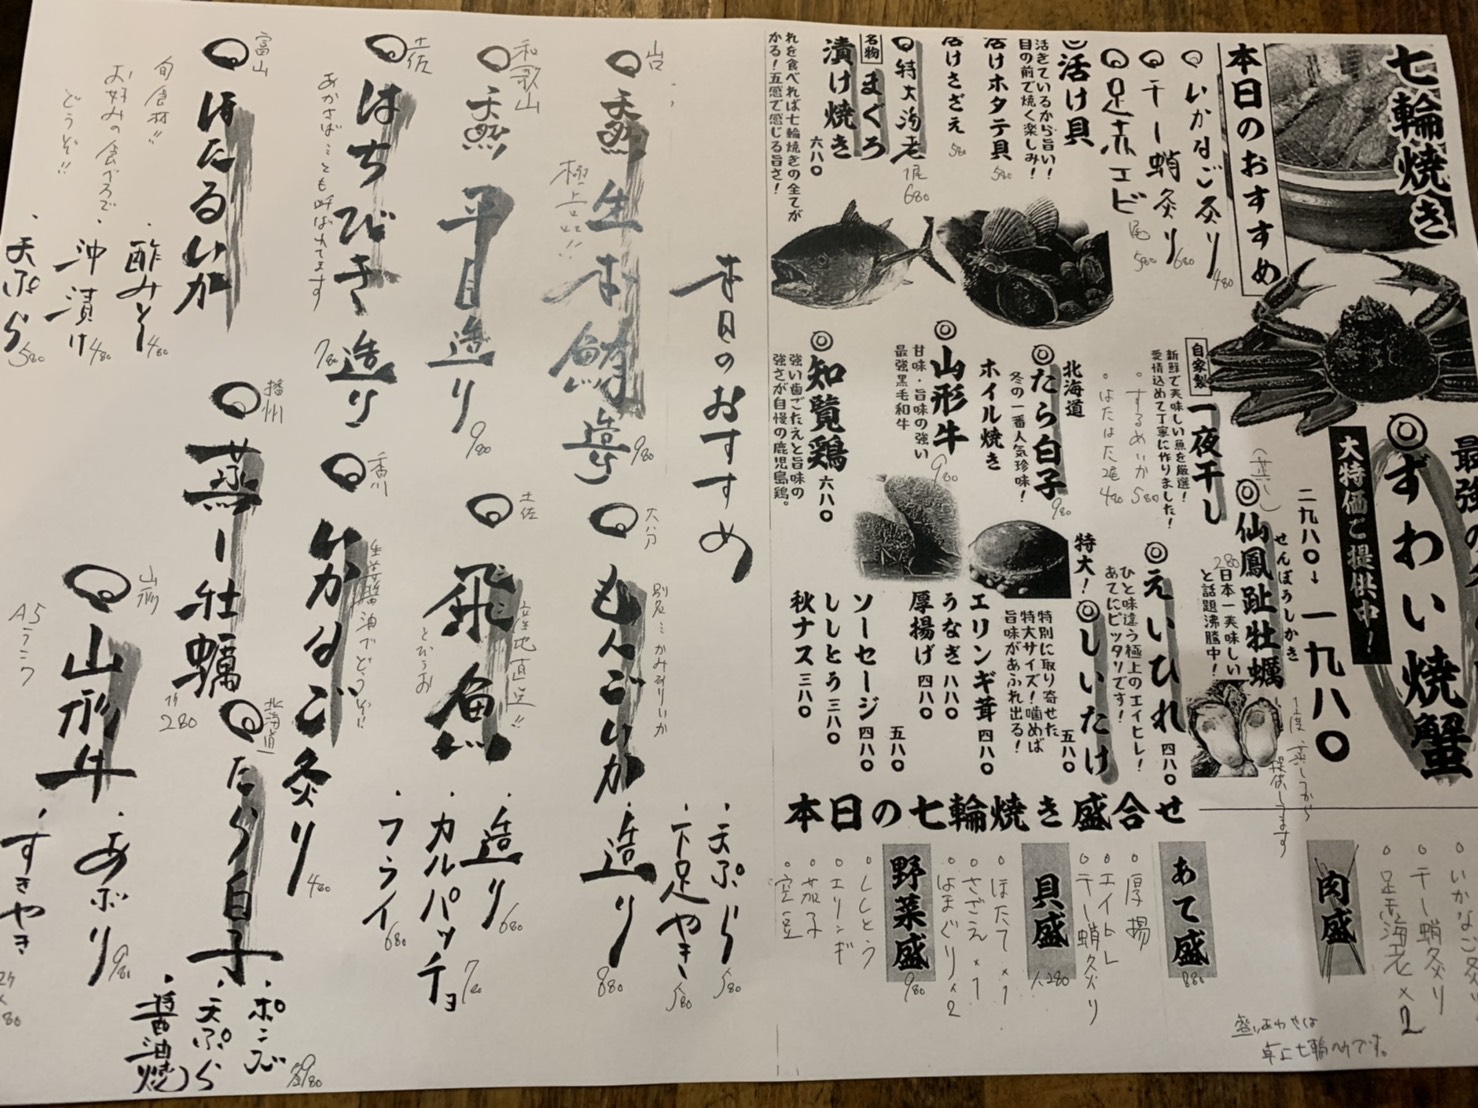 七輪焼き
本日のおすすめ
いかなご炙り 480
干し蛸炙り 680
足赤エビ 1尾 580
◎活け貝
活きているから旨い！
目の前で焼く楽しみ！
活けホタテ貝 580
活けさざえ 580
特大海老 1尾 680
名物 まぐろ
漬け焼き 六八〇
れを食べれば七輪焼きの全てが
かる！五感で感じる旨さ！
最強の
◎ずわい焼蟹
大特価ご提供中！
二九八〇→一九八〇
せんぽうしかき
◎仙鳳趾牡蠣
（蒸し）
280
日本一美味しい
と話題沸騰中！
1度蒸してから
提供します
自家製 一夜干し
新鮮で美味しい魚を厳選！
愛情込めて丁寧に作りました！
するめいか 580
はたはた2尾 480
北海道
◎たら白子 980
冬の一番人気珍味！
ホイル焼き
◎山形牛 980
甘味・旨味の強い
最強黒毛和牛
◎知覧鶏 六八〇
強い歯ごたえと旨味の
強さが自慢の鹿児島鶏。
◎えいひれ 四八〇
ひと味違う極上のエイヒレ！
あてにピッタリです！
特大！◎しいたけ 五八〇
特別に取り寄せた
特大サイズ！噛めば
旨味があふれ出る！
エリンギ茸 四八〇
うなぎ 八八〇
厚揚げ 四八〇
五八〇
ソーセージ 四八〇
ししとう 三八〇
秋ナス 三八〇
本日の七輪焼き盛合せ
いかなご炙り
干し蛸炙り
足赤海老×2
肉盛
盛りあわせは
卓上七輪のみです。
あて盛 880
厚揚
エイヒレ
干し蛸炙り
貝盛 1,280
ほたて×1
さざえ×1
はまぐり×2
野菜盛 980
ししとう
エリンギ
茄子
空豆
本日のおすすめ
天然生本鮪造り 980
極上品!!
大分
もんごいか
別名：かみなりいか
・造り 880
・天ぷら 580
・下足やき 580
和歌山
天然平目造り 980
土佐
飛魚
とびうお
産地直送!!
・造り 680
・カルパッチョ 780
・フライ 680
土佐
はちびき造り 780
あかさばとも呼ばれてます
香川
いかなご炙り 480
生姜醤油でどうぞ!!
富山
ほたるいか
旬食材!!
お好みの食べ方で
どうぞ!!
・酢みそ 480
・沖漬け 480
・天ぷら 580
播州
蒸し牡蠣 1ケ 280
北海道
たら白子
・ポン酢
・天ぷら
・醤油焼
各980
山形
山形牛
A5ランク
・あぶり 980
・すきやき